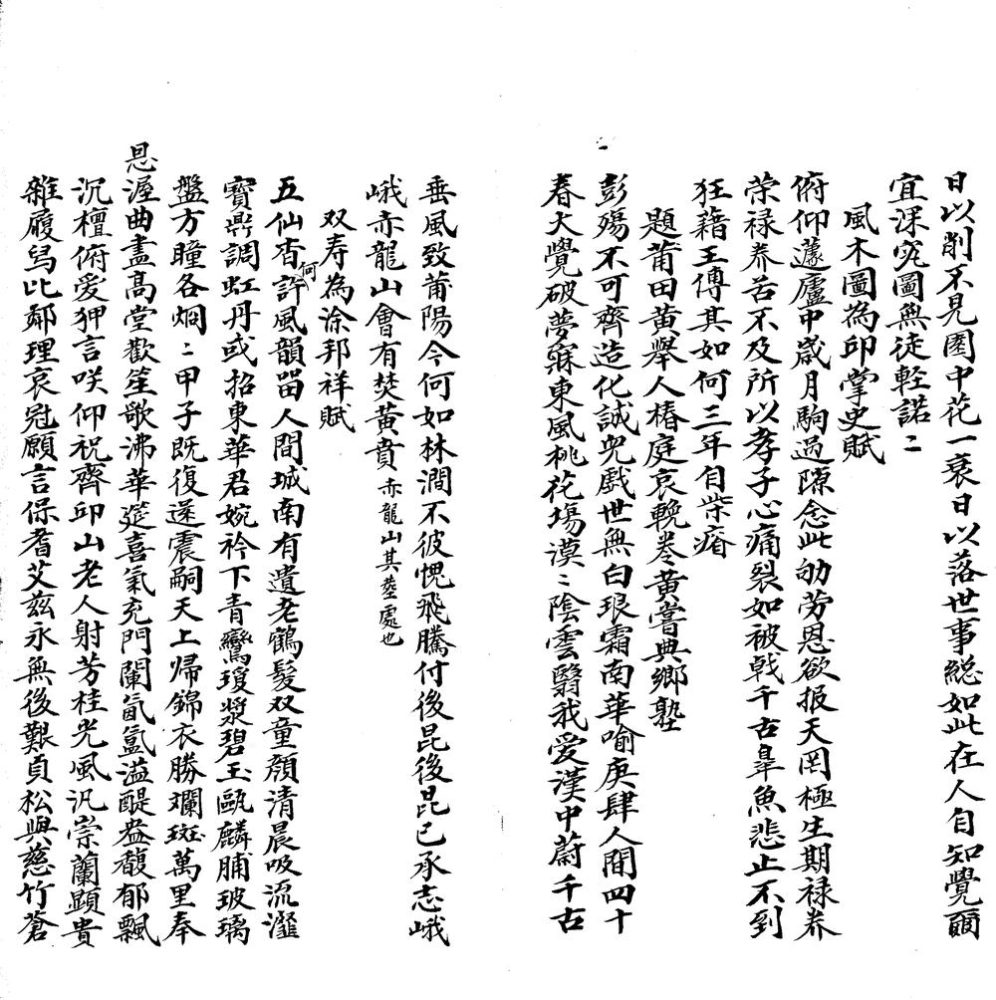 日以削不見園中花一衰日以落世事総如此在人自知覺爾
宜深究圖無徒輕諾〻
風木圖為印掌史賦
俯仰蘧廬中歲月駒過隙念此劬劳恩欲报天罔極生期禄养
荣禄养苦不及所以孝子心痛裂如被戟千古皋魚悲止不到
狂藉王傅其如何三年自柴瘠
題莆田黄舉人椿庭哀輓卷黄嘗典鄉塾
彭殤不可齊造化誠兒戲世無白琅霜南華喻庚肆人間四十
春大覺破夢寐東風桃花塲漠〻陰雲翳我愛漢中蔚千古
垂風致莆陽今何如林澗不彼愧飛騰付後昆後昆已承志峨
峨赤龍山會有焚黄賁赤龍山其塟處也
双寿為涂邦祥賦
五仙杳何許風韻留人間城南有遺老鶴髮双童顔清晨吸流瀣
寳鼎調虹丹或招東華君婉衿下青鸞瓊漿碧玉甌麟脯玻璃
盤方瞳各烱〻甲子既復還震嗣天上帰錦衣勝斓斑萬里奉
恩渥曲盡高堂歡笙歌沸華筵喜氣充門闌氤氲溢醍盎馥郁飄
沉檀俯爱狎言咲仰祝齊卬山老人射芳桂光風汎崇蘭顕貴
雜履舄比鄰理哀冠願言保耆艾兹永無後艱貞松與慈竹蒼